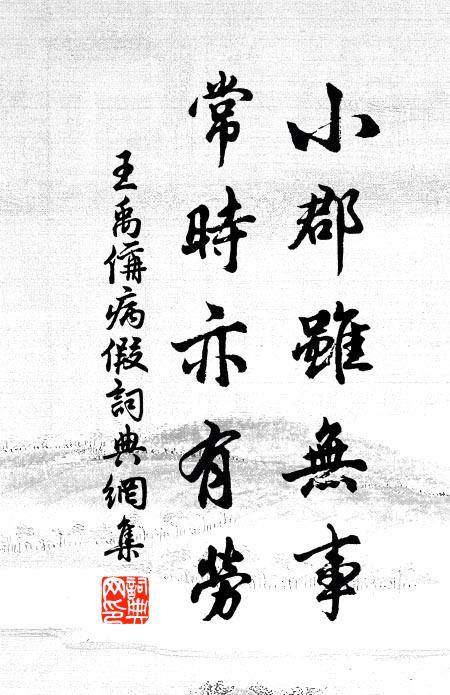 小郡雖無事
常時亦有勞
王禹偁病假詞典網集
詞典
网